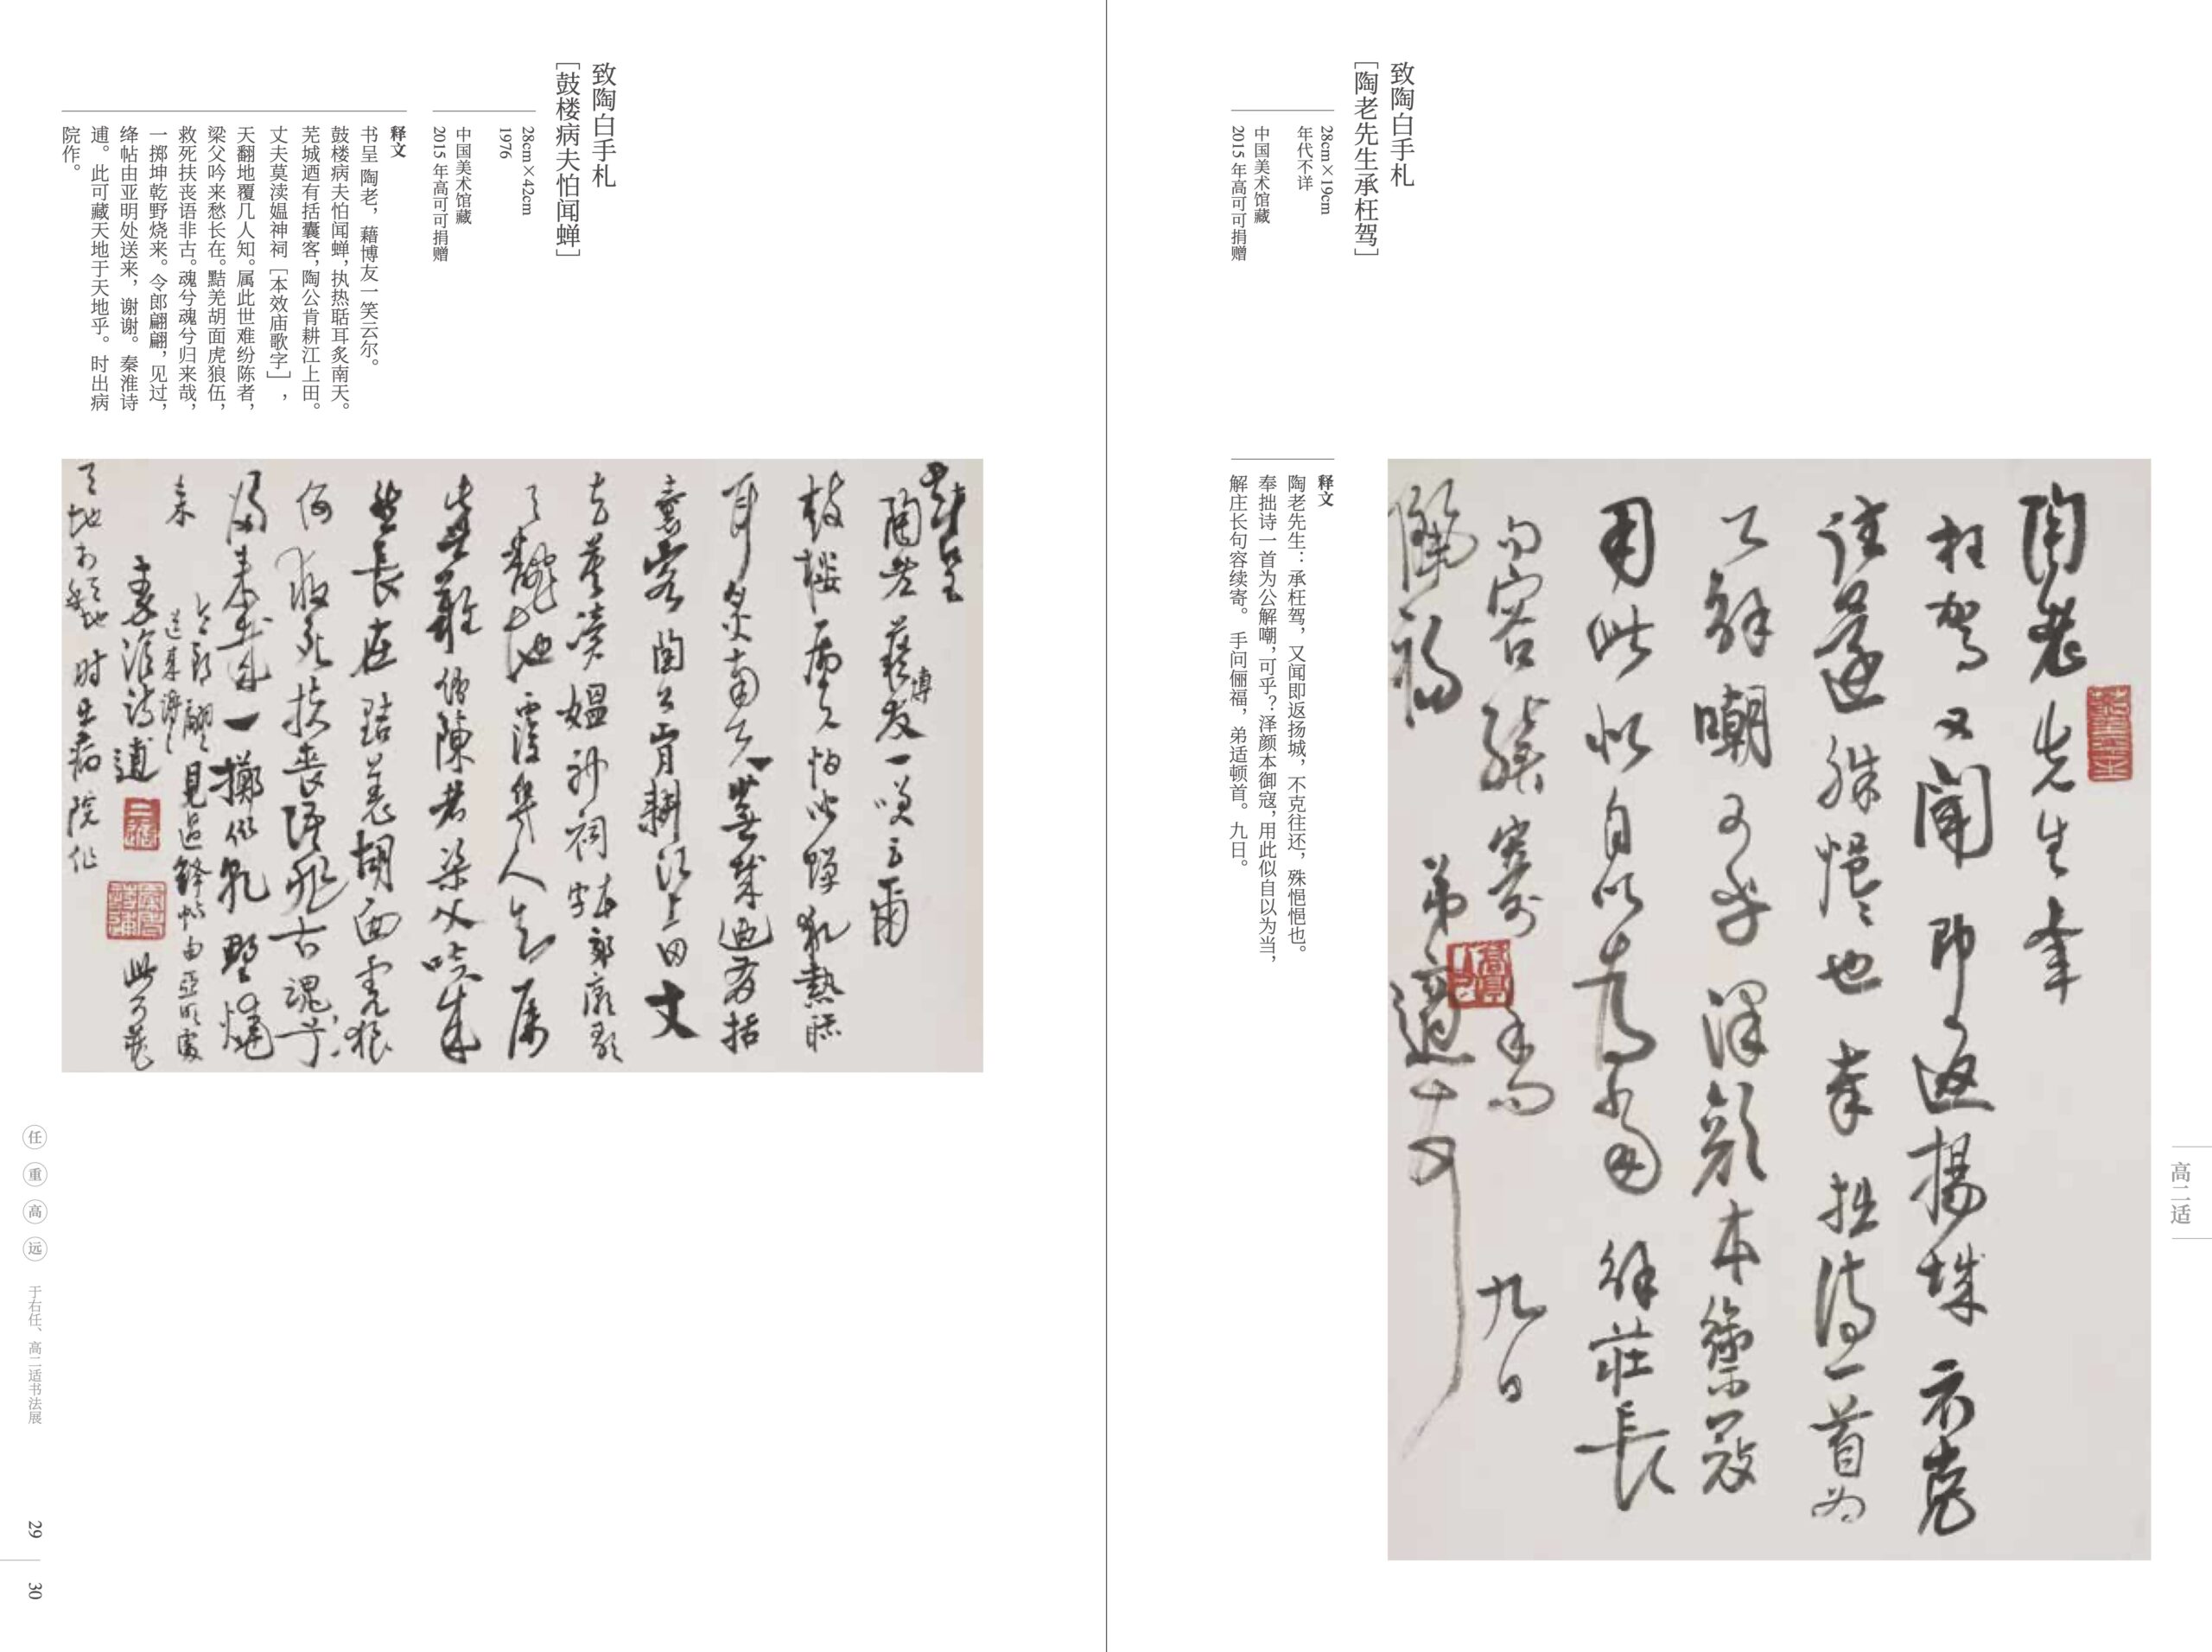 高二适
致陶白手札
［陶老先生承枉驾］
28cm×19cm
年代不详
中国美术馆藏
2015 年高可可捐赠
释文
陶老先生：承枉驾，又闻即返扬城，不克往还，殊悒悒也。
奉拙诗一首为公解嘲，可乎？泽颜本御寇，用此似自以为当，
解庄长句容续寄。 手问俪福，弟适顿首。 九日。
陶老先生承
枉驾又闻即返揚城不克
往还殊悒悒也奉拙诗一首为
公解嘲可乎泽颜本禦寇
用此似自以为当解莊長
句容续寄手问 九日
俪福 弟適顿首
致陶白手札
［鼓楼病夫怕闻蝉］
28cm×42cm
1976
中国美术馆藏
2015 年高可可捐赠
释文
书呈 陶老，藉博友一笑云尔。
鼓楼病夫怕闻蝉，执热聒耳炙南天。
芜城迺有括囊客，陶公肯耕江上田。
丈夫莫渎媪神祠［本效庙歌字］，
天翻地覆几人知。属此世难纷陈者，
梁父吟来愁长在。黠羌胡面虎狼伍，
救死扶丧语非古。魂兮魂兮归来哉，
一掷坤乾野烧来。令郎翩翩，见过，
绛帖由亚明处送来，谢谢。秦淮诗
逋。此可藏天地于天地乎。时出病
院作。
任重高远
于右任、高二适书法展
29
30